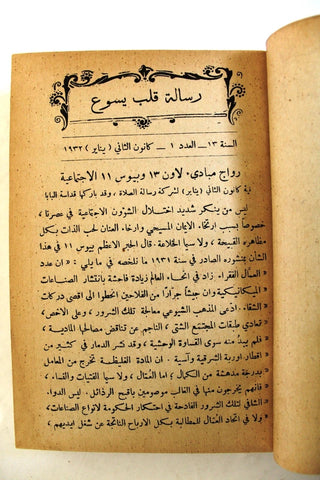 رسالة قلب يسوع
السنة ١٣ – العدد ١ – كانون الثاني ( يناير ) ١٩٣٢
رواج مبادىء لاون ١٣ وبيوس ١١ الاجتماعية
ية كانون الثاني ( يناير ) لشركة رسالة الصلاة ، وقد باركها قداسة البابا
ليس من ينكر شديد اختلال الشؤون الاجتماعية في عصرنا ،
خصوصاً بسبب ارتخاء الايمان المسيحي وارخاء العنان لحب الذات بكل
مظاهره القبيحة ، ولا سيما الخلاعة . قال الحبر الاعظم بيوس ١١ في هذا
الشأن بمنشوره الصادر في سنة ١٩٣١ ما نلخصه في ما يلي : « ان عدد
العمال الفقراء زاد في انحاء العالم زيادة فاحشة بانتشار الصناعات
الميكانيكية وان جيشاً جراراً من الفلاحين انحطوا الى اقصى دركات
الشقاء . ادّعى المذهب الشيوعي معالجة تلك الشرور ، وعلى الاخص ،
تعادي طبقات المجتمع الشتى ، الناجم عن تناقض مصالحها المادية ،
فلم يبد منه سوى القساوة الوحشية ، وقد نشر الدمار في كثير من
اقطار اوربة الشرقية وآسية . ان المادة الغليظة تخرج من المعامل
بدرجة مدهشة من الكمال ؛ اما العمّال ، ولا سيما الفتيات والنساء ،
فانهم يخرجون منها في الغالب موصومين باقبح الرذائل . ليس الدواء
الشافي لتلك الشرور الفادحة في احتكار الحكومة لانواع الصناعات ،
ولا في اتحاد العمّال للمطالبة بكل الارباح الناتجة عن شغل ايديهم ،